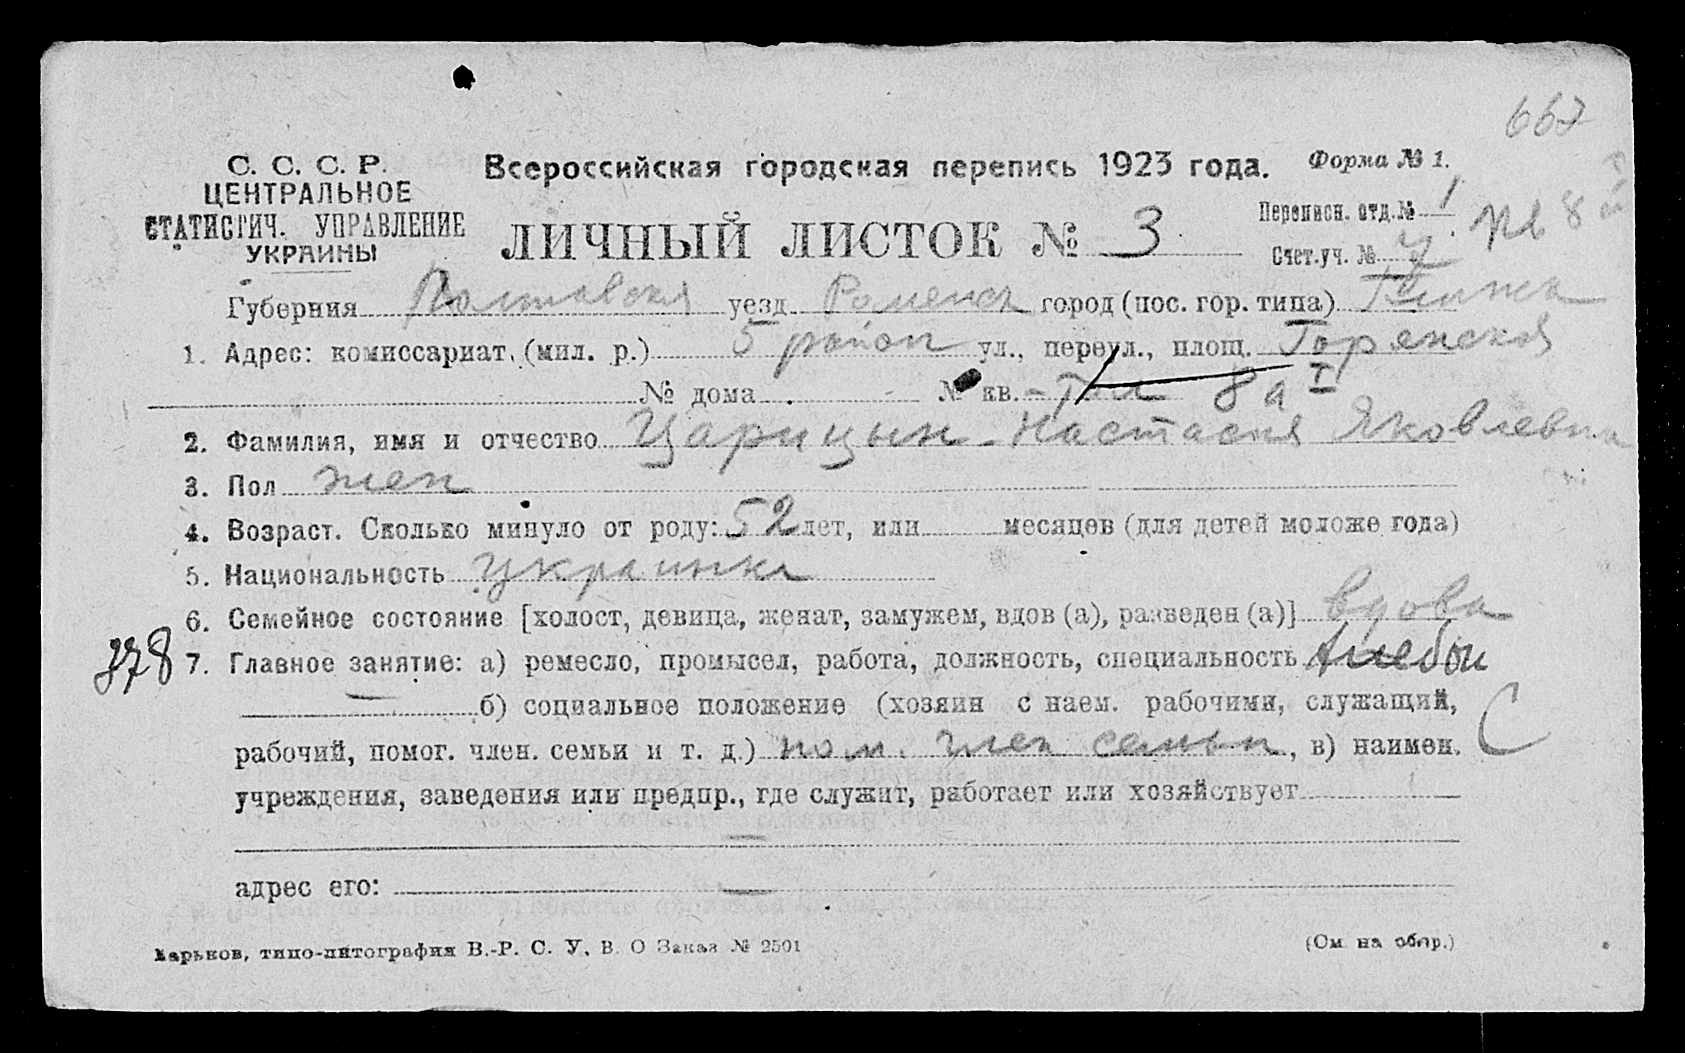 667
С. С. С. Р.
ЦЕНТРАЛЬНОЕ
СТАТИСТИЧ. УПРАВЛЕНИЕ
УКРАИНЫ
Всероссийская городская перепись 1923 года.
Форма № 1.
ЛИЧНЫЙ ЛИСТОК № 3
Переписн. отд. № 1
Счет. уч. №
Губерния Полтавская уезд Роменск город (пос. гор. типа)
1. Адрес: комиссариат, (мил. р.) 5 район ул., переул., площ.
№ дома № кв. 8а I
2. Фамилия, имя и отчество Царицын Настасия Яковлевна
3. Пол жен
4. Возраст. Сколько минуло от роду: 52 лет, или месяцев (для детей моложе года)
5. Национальность Украинка
6. Семейное состояние [холост, девица, женат, замужем, вдов (а), разведен (а)] вдова
378 7. Главное занятие: а) ремесло, промысел, работа, должность, специальность
б) социальное положение (хозяин с наем. рабочими, служащий,
рабочий, помог. член. семьи и т. д.) пом. член семьи, в) наимен. С
учреждения, заведения или предпр., где служит, работает или хозяйствует
—
адрес его: —
Харьков, типо-литография В.-Р. С. У. В. О Заказ № 2501
(См. на обор.)